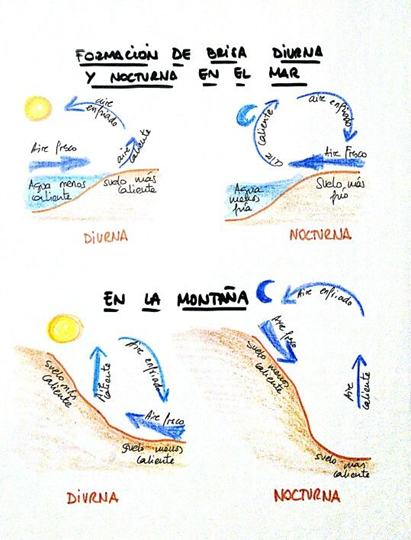 FORMACIÓN DE BRISA DIURNA
Y NOCTURNA EN EL MAR
aire
enfriado
aire
caliente
Aire fresco
Agua menos
caliente
suelo más
caliente
DIURNA
aire enfriado
Aire caliente
Aire Fresco
Agua
menos
fría
Suelo más
frío
NOCTURNA
EN LA MONTAÑA
suelo más
caliente
Aire
caliente
Aire
enfriado
Aire fresco
suelo menos
caliente
DIURNA
Aire enfriado
Aire
fresco
suelo menos
caliente
Aire
caliente
suelo más
caliente
NOCTURNA